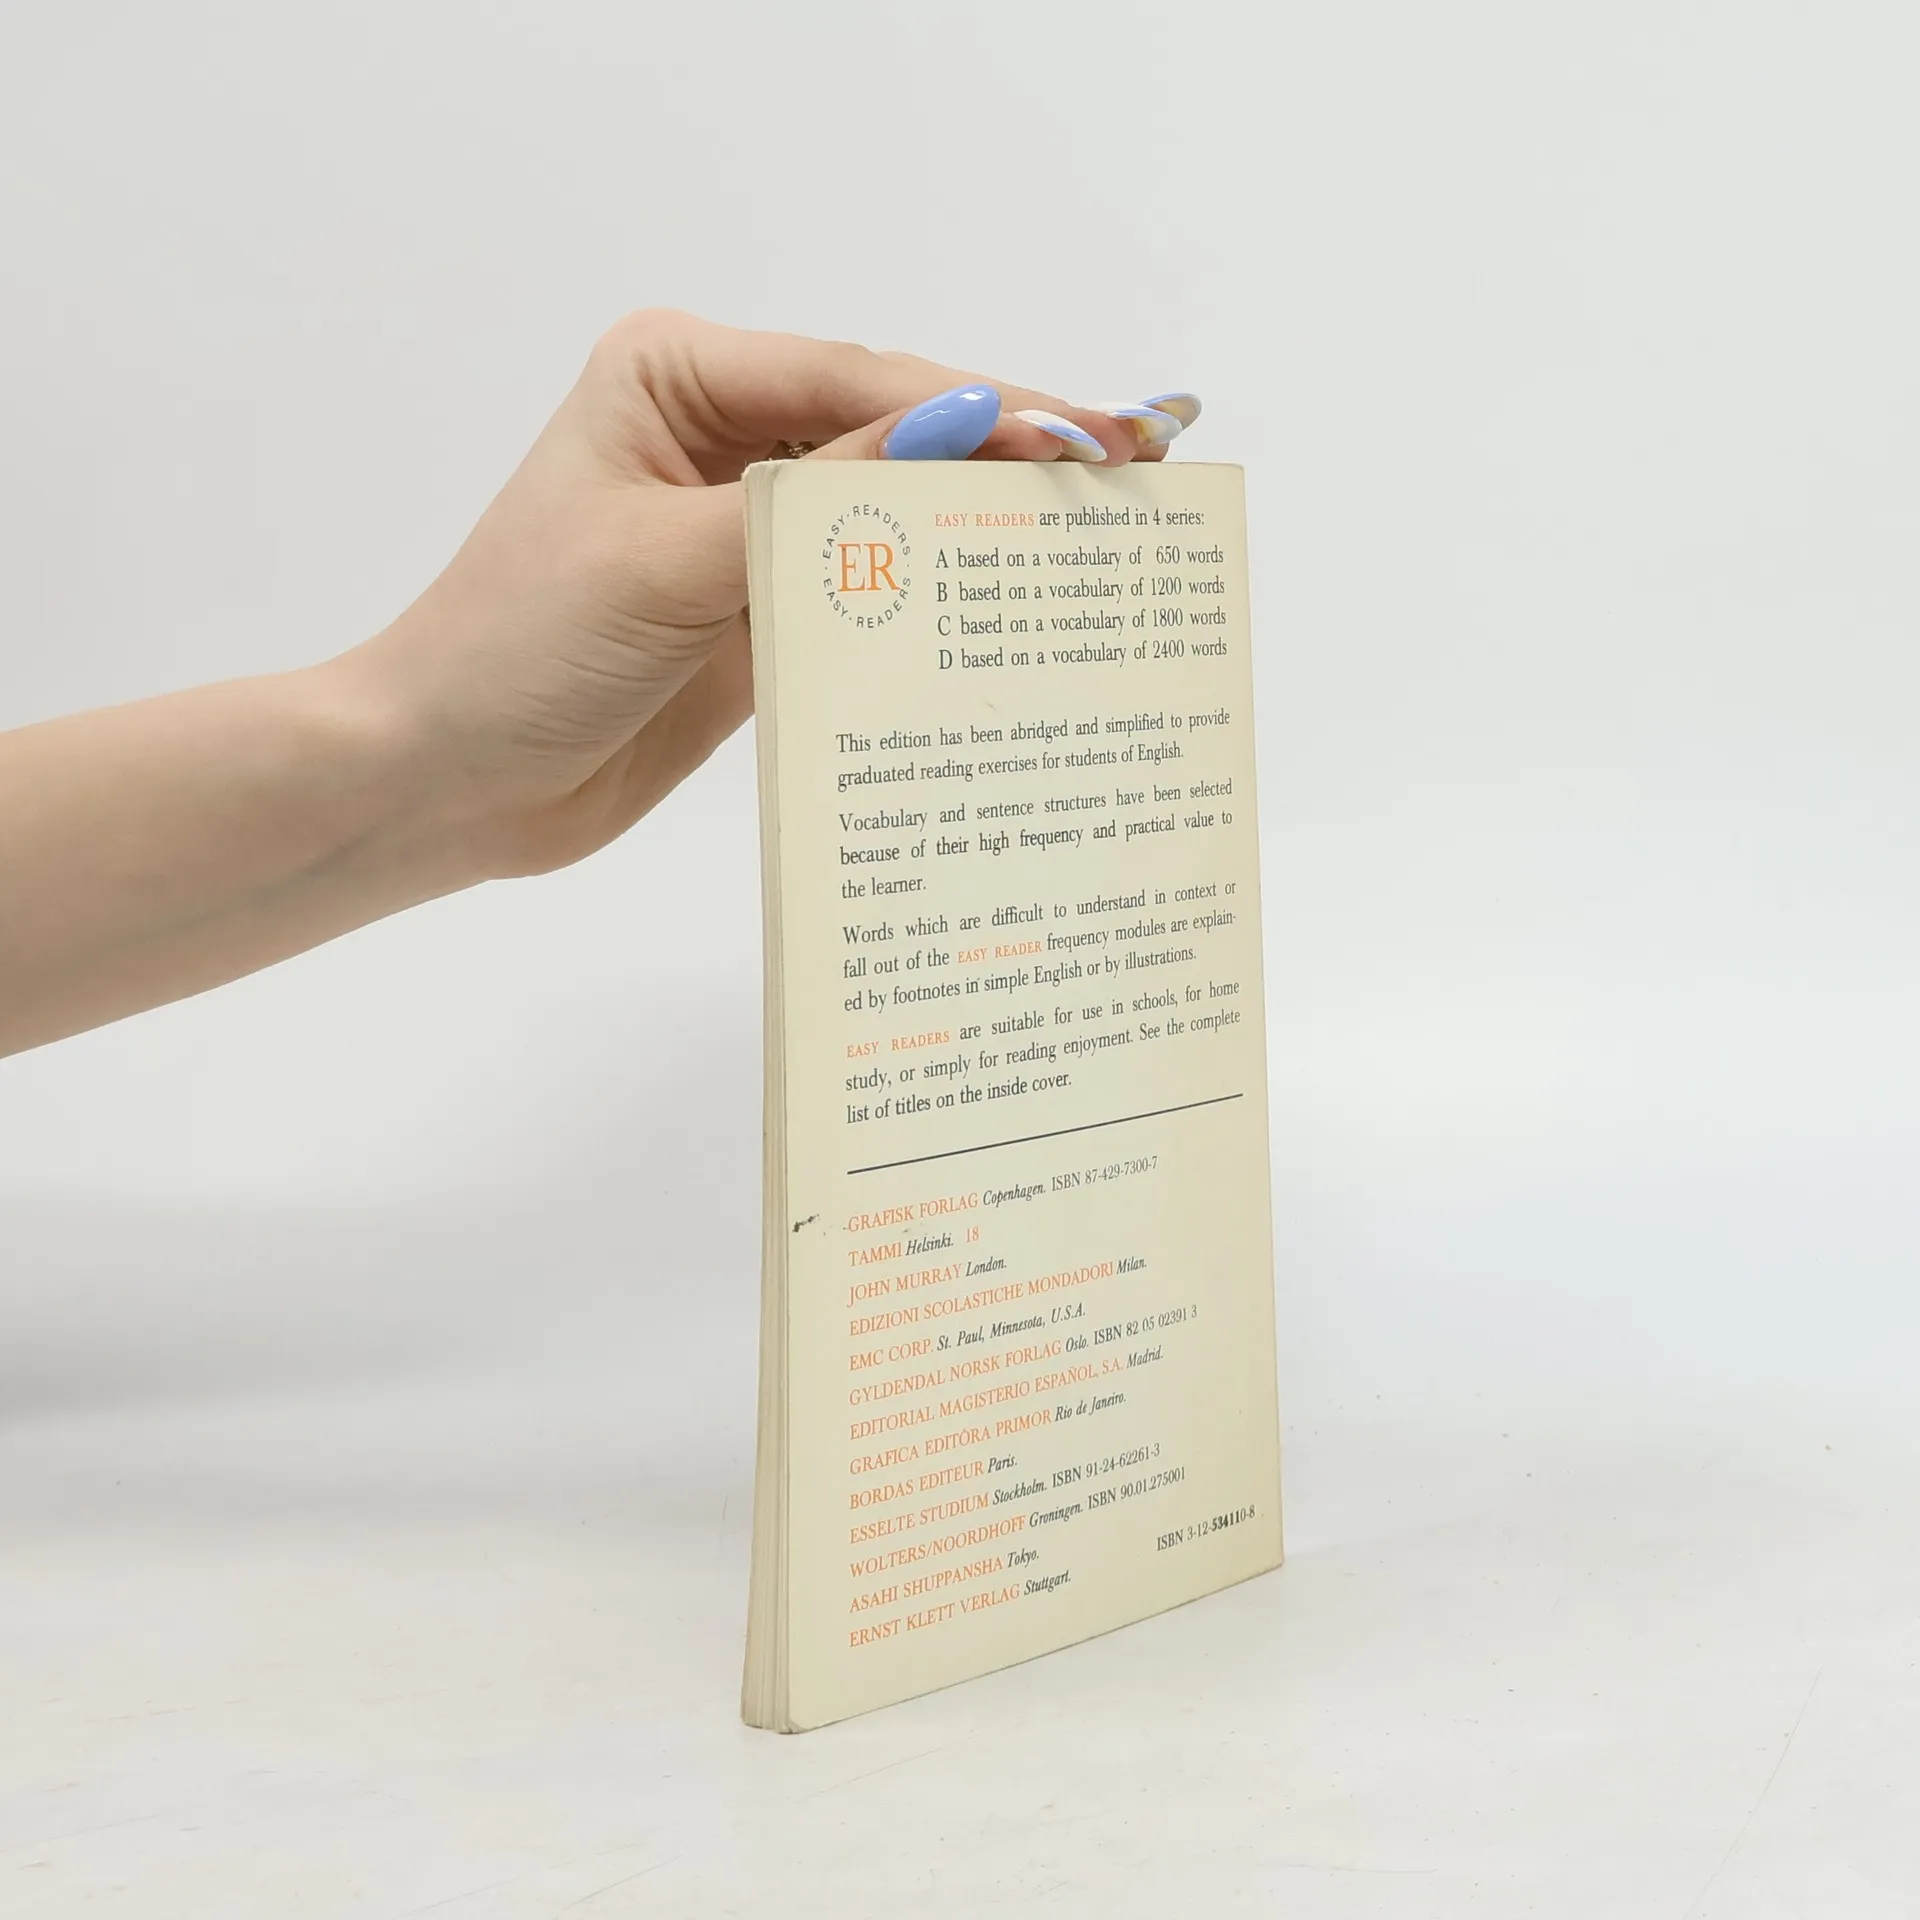 EASY·READERS·EASY·READERS·
ER
EASY READERS are published in 4 series:
A based on a vocabulary of 650 words
B based on a vocabulary of 1200 words
C based on a vocabulary of 1800 words
D based on a vocabulary of 2400 words
This edition has been abridged and simplified to provide
graduated reading exercises for students of English.
Vocabulary and sentence structures have been selected
because of their high frequency and practical value to
the learner.
Words which are difficult to understand in context or
fall out of the EASY READER frequency modules are explain-
ed by footnotes in simple English or by illustrations.
EASY READERS are suitable for use in schools, for home
study, or simply for reading enjoyment. See the complete
list of titles on the inside cover.
GRAFISK FORLAG Copenhagen. ISBN 87-429-7300-7
TAMMI Helsinki. 18
JOHN MURRAY London.
EDIZIONI SCOLASTICHE MONDADORI Milan.
EMC CORP. St. Paul, Minnesota, U.S.A.
GYLDENDAL NORSK FORLAG Oslo. ISBN 82 05 02391 3
EDITORIAL MAGISTERIO ESPAÑOL, S.A. Madrid.
GRAFICA EDITÔRA PRIMOR Rio de Janeiro.
BORDAS EDITEUR Paris.
ESSELTE STUDIUM Stockholm. ISBN 91-24-62261-3
WOLTERS/NOORDHOFF Groningen. ISBN 90.01.275001
ASAHI SHUPPANSHA Tokyo.
ERNST KLETT VERLAG Stuttgart.
ISBN 3-12-534110-8